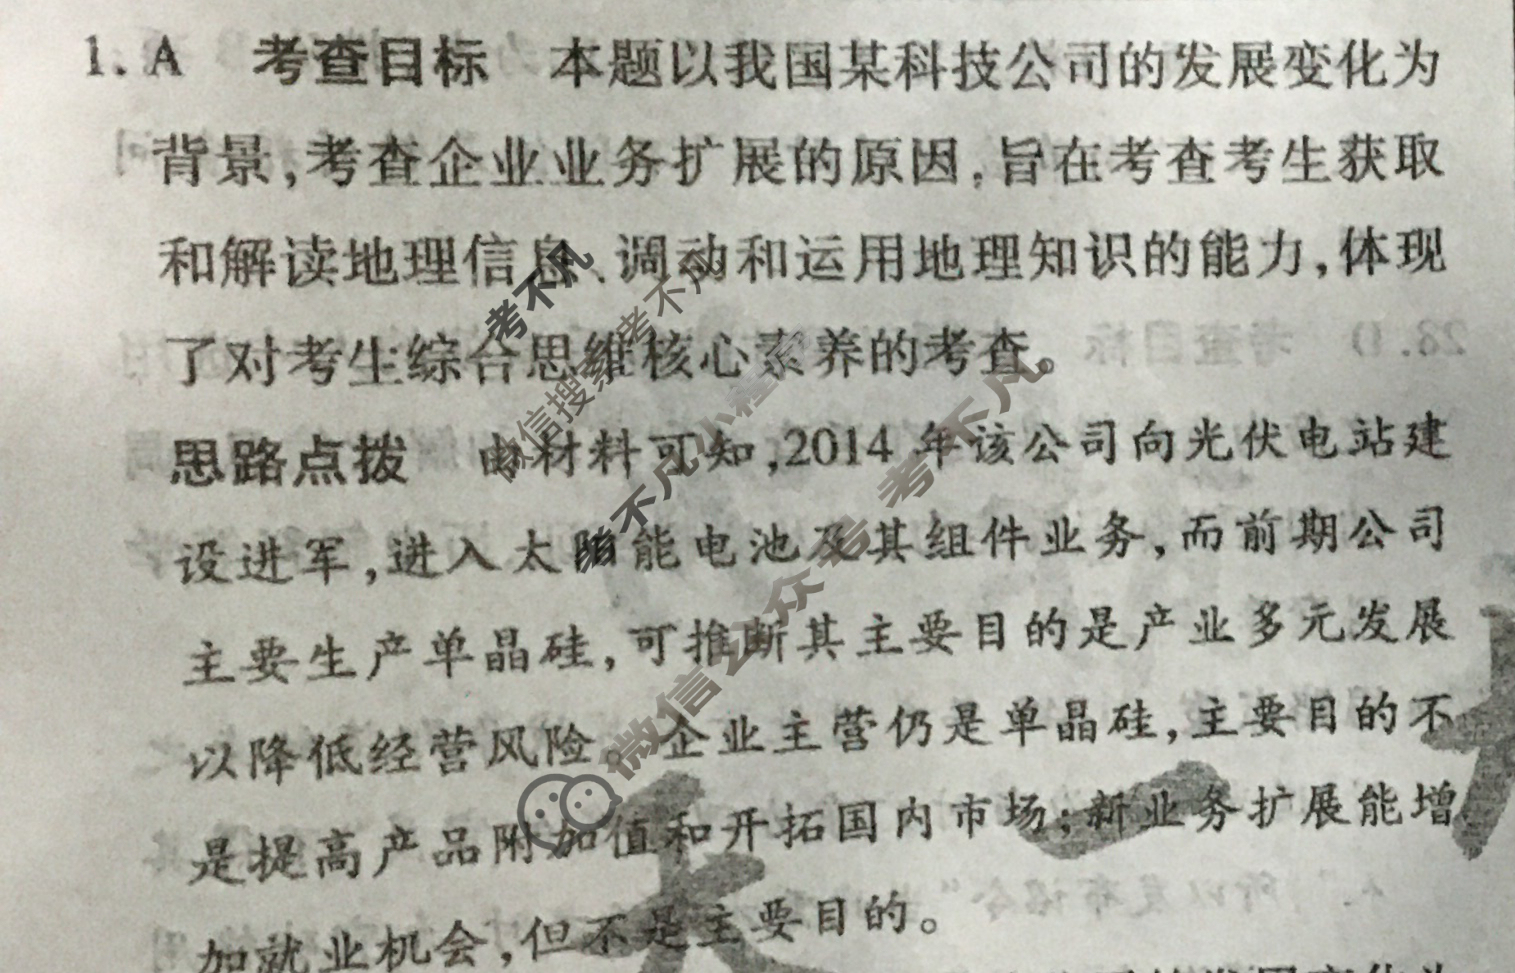 1. A 考查目标 本题以我国某科技公司的发展变化为
背景,考查企业业务扩展的原因,旨在考查考生获取
和解读地理信息、调动和运用地理知识的能力,体现
了对考生综合思维核心素养的考查。
思路点拨 由材料可知,2014年该公司向光伏电站建
设进军,进入太阳能电池及其组件业务,而前期公司
主要生产单晶硅,可推断其主要目的是产业多元发展
以降低经营风险。企业主营仍是单晶硅,主要目的不
是提高产品附加值和开拓国内市场;新业务扩展能增
加就业机会,但不是主要目的。
考不凡
微信搜索考不凡
考不凡小程序
微信公众号 考不凡